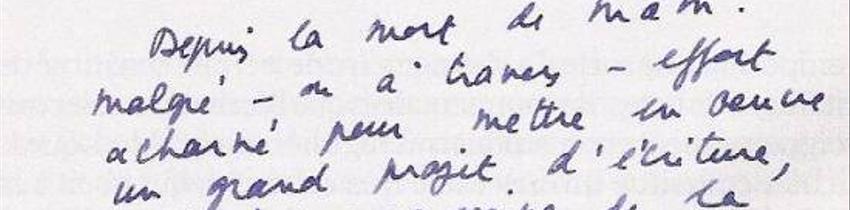 Depuis la mort de mam.
malgré – ou à travers – effort
acharné pour mettre en oeuvre
un grand projet d'écriture,
de la